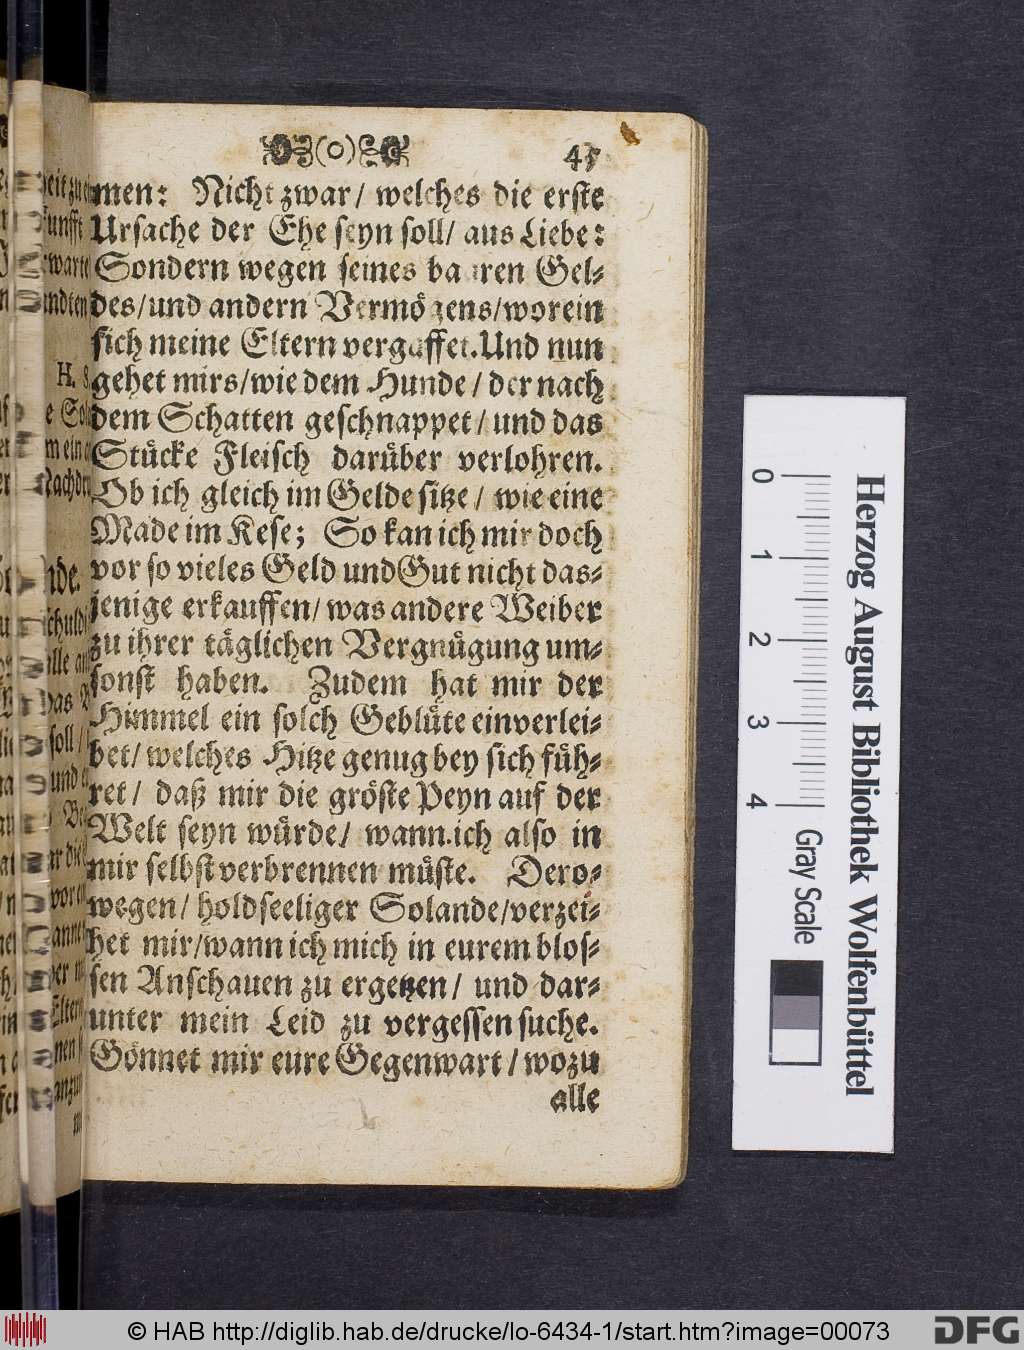 (o) 45
men: Nicht zwar/ welches die erste
Ursache der Ehe seyn soll/ aus Liebe:
Sondern wegen seines baaren Gel-
des/und andern Vermögens/worein
sich meine Eltern vergaffet. Und nun
gehet mirs/wie dem Hunde/ der nach
dem Schatten geschnappet/ und das
Stücke Fleisch darüber verlohren.
Ob ich gleich im Gelde sitze/ wie eine
Made im Kese; So kan ich mir doch
vor so vieles Geld und Gut nicht das-
jenige erkauffen/ was andere Weiber
zu ihrer täglichen Vergnügung um-
sonst haben. Zudem hat mir der
Himmel ein solch Geblüte einverlei-
bet/ welches Hitze genug bey sich füh-
ret/ daß mir die gröste Peyn auf der
Welt seyn würde/ wann ich also in
mir selbst verbrennen müste. Dero-
wegen/ holdseeliger Solande/verzei-
het mir/wann ich mich in eurem blos-
sen Anschauen zu ergetzen/ und dar-
unter mein Leid zu vergessen suche.
Gönnet mir eure Gegenwart/ wozu
alle
0 1 2 3 4
Gray Scale
Herzog August Bibliothek Wolfenbüttel
© HAB http://diglib.hab.de/drucke/lo-6434-1/start.htm?image=00073
DFG